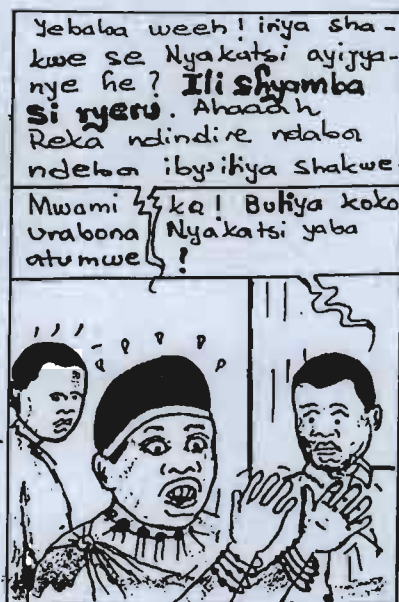 Yebaba weeh! iriya sha-
kwe se Nyakatsi ayijya-
nye he? Ili Shyamba
si ryeru. Ahaaah
Reka ndindire ndaba
ndeba ibyiliya shakwe.
Mwami
urabona
ka! Buliya koko
Nyakatsi yaba
atumwe
?